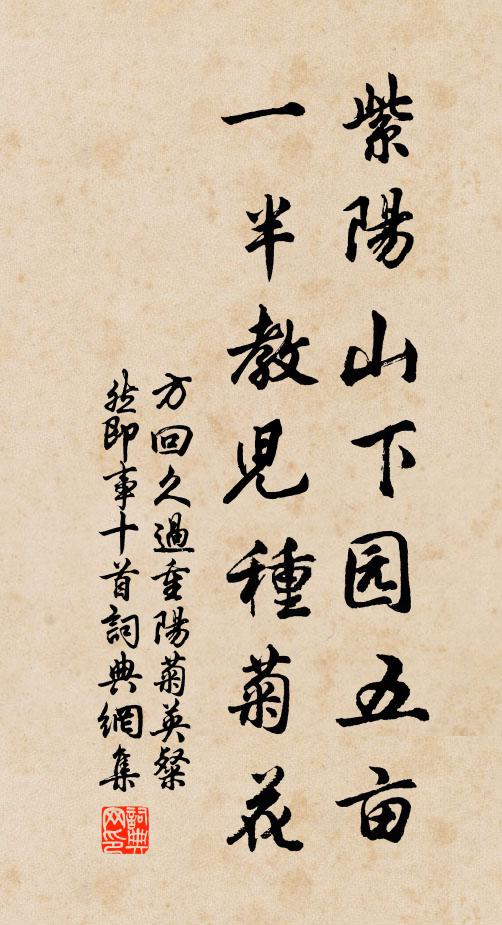 紫陽山下园五亩
一半教児種菊花
方回久過重陽菊英粲
然即事十首詞典網集
詞典
网印